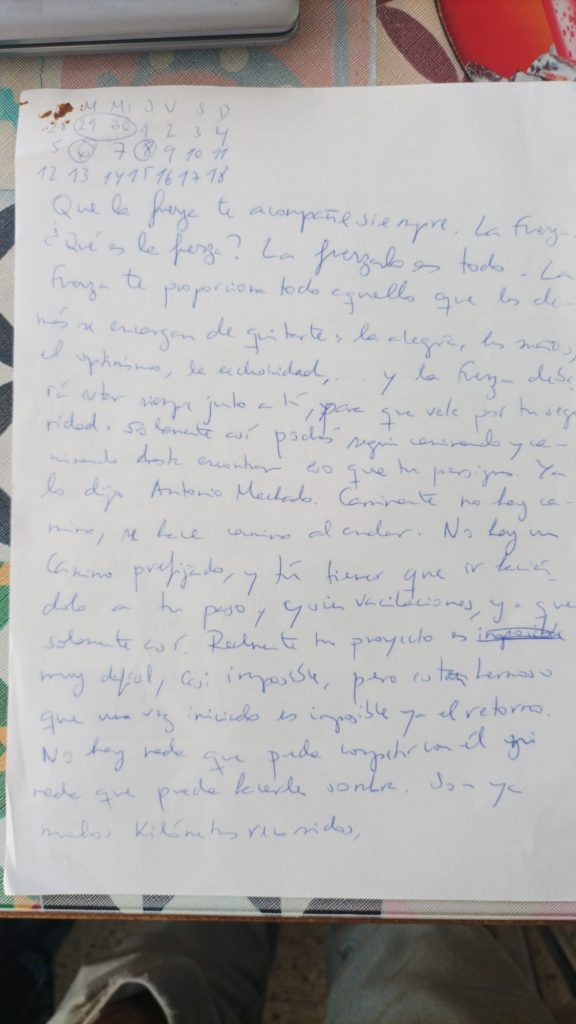 M Mi J V S D
28 29 30 1 2 3 4
5 6 7 8 9 10 11
12 13 14 15 16 17 18
Que la fuerza te acompañe siempre. La Fuerza.
¿Qué es la fuerza? La fuerza lo es todo. La
Fuerza te proporciona todo aquello que los de-
más se encargan de quitarte: la alegría, los sueños,
el optimismo, la ... y la Fuerza debe
rá estar siempre junto a ti, para que vele por tu segu
ridad. Solamente así podrás seguir caminando y ca-
minando hasta encontrar eso que tu persigues. Ya
lo dijo Antonio Machado. Caminante no hay ca-
mino, se hace camino al andar. No hay un
Camino prefijado, y tú tienes que ir hacién
dolo a tu paso, y sin vacilaciones, ya que
solamente así. Realmente tu proyecto es imposible
muy difícil, casi imposible, pero es tan hermoso
que una vez iniciado es imposible ya el retorno.
No hay nada que pueda competir con él
nada que pueda hacerle sombra. Son ya
muchos Kilómetros recorridos,